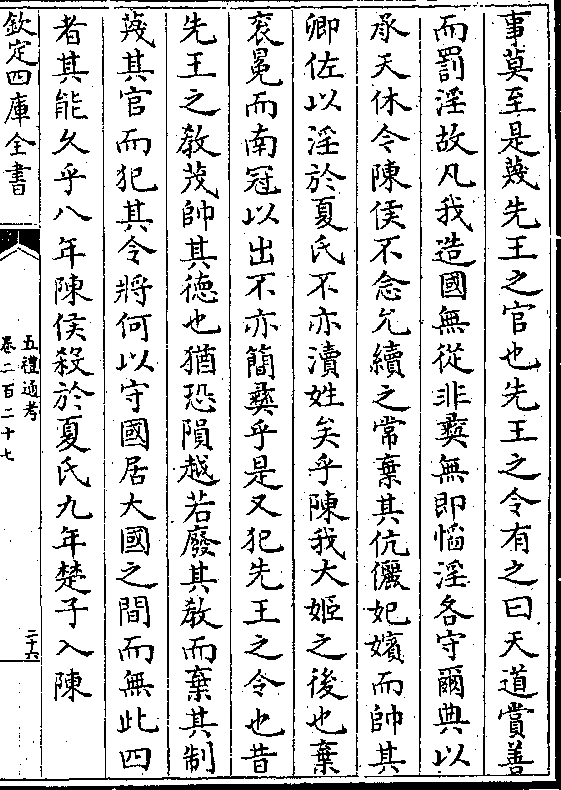 事莫至是蔑先王之官也先王之令有之曰天道賞善
而罰淫故凡我造國無從非彛無即慆淫各守爾典以
承天休令陳侯不念𠃔續之常棄其伉儷妃嬪而帥其
卿佐以淫於夏氏不亦瀆姓矣乎陳我大姬之後也棄
衮冕而南冠以出不亦簡彛乎是又犯先王之令也昔
先王之敎茂帥其德也猶恐隕越若廢其敎而棄其制
蔑其官而犯其令將何以守國居大國之間而無此四
者其能久乎八年陳侯殺於夏氏九年楚子入陳
欽定四庫全書
五禮通考
卷二百二十七
二十六